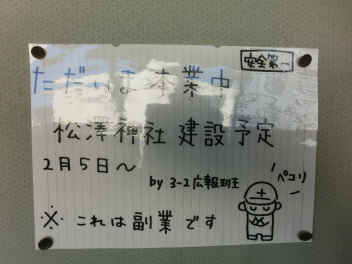 安全第一
ただいま本業中
松澤神社 建設予定
2月5日～
by 3-2広報班
ペコリ
※ これは副業です